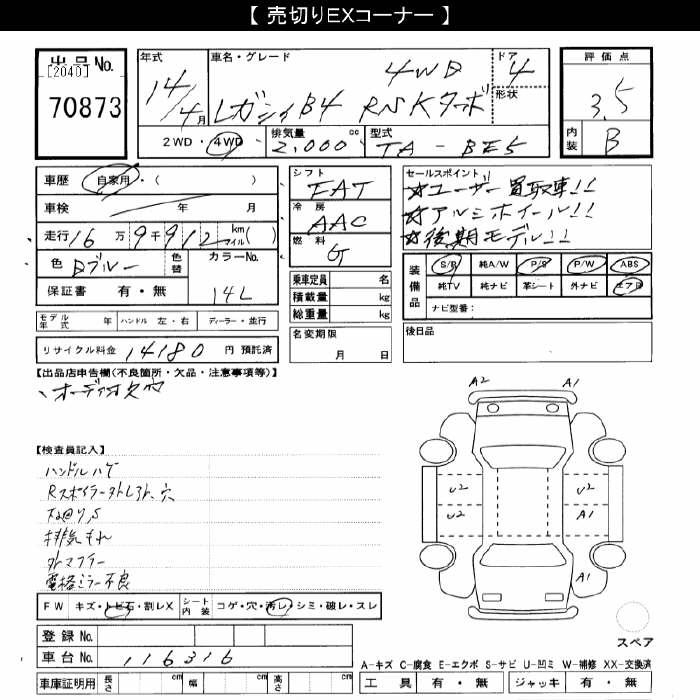 【 売切りEXコーナー 】
出品No. [2040] 70873
年式 14/4月
車名・グレード レガシィB4 RSKターボ 4WD
ドア 4
形状
2WD・4WD 排気量 2,000 cc 型式 TA-BE5
評価点 3.5
内装 B
車歴 自家用・( )
車検 年 月
走行 16万9千912 km マイル( )
色 Dブルー 色替 カラーNo. 14L
保証書 有・無
モデル年式 年 ハンドル 左・右 ディーラー・並行
リサイクル料金 14180 円 預託済
シフト FAT
冷房 AAC
燃料 G
乗車定員 名
積載量 kg
総重量 kg
名変期限 月 日
セールスポイント
☆ユーザー買取車!!
☆アルミホイール!!
☆後期モデル!!
装備品 S/R 純A/W P/S P/W ABS
純TV 純ナビ 革シート 外ナビ エアB
ナビ型番:
後日品
【出品店申告欄(不良箇所・欠品・注意事項等)】
、オーディオ欠穴
【検査員記入】
ハンドルハゲ
Rスポイラー
排気もれ
外マフラー
電格ミラー不良
FW キズ・トビ石・割レX シート内装 コゲ・穴・汚レ・シミ・破レ・スレ
登録No.
車台No. 116316
車庫証明用 長さ cm 幅 cm 高さ cm
A2 A1
U2 U2
U2 A1
A1
スペア
A-キズ C-腐食 E-エクボ S-サビ U-凹ミ W-補修 XX-交換済
工具 有・無 ジャッキ 有・無